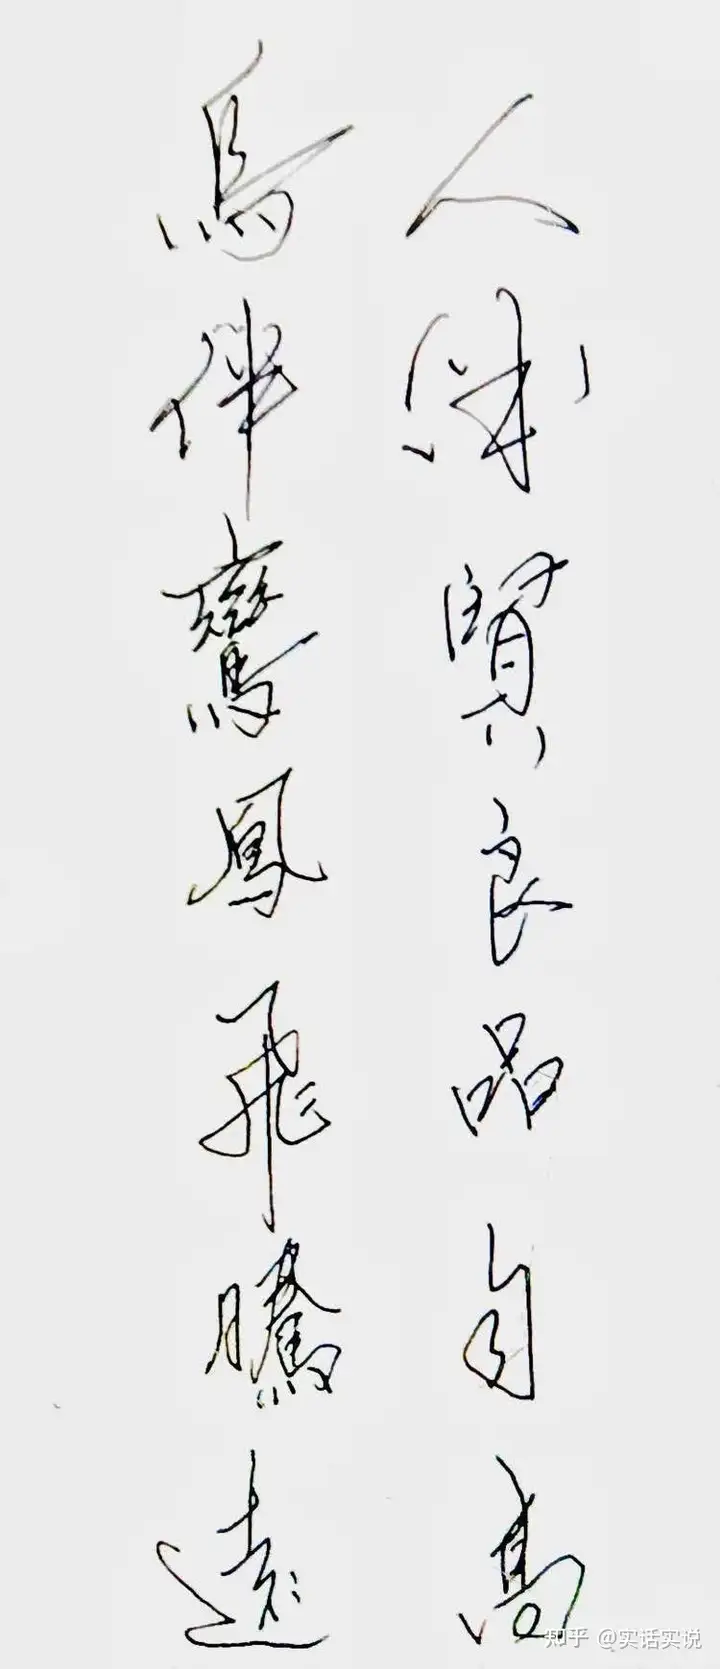 人賢良品自高
鳥伴鸞鳳飛騰遠
知乎 @实话实说